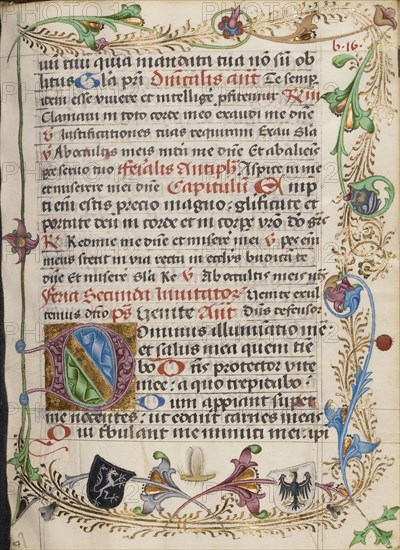 tuū quia mandata tua nō sū ob
litus Gla pri ant Te semp
idem esse viuere et intelligē
Clamaui in toto corde meo exaudi me dn̄e
℣ Iustificationes tuas requiram Exau Gla
℣ Ab occultis meis mūda me dn̄e Et ab alieis
pce seruo tuo Feralis Antiph Aspice in me
et miserere mei dn̄e Capitulū Emp
ti em̄ estis precio magno: glificate et
portate deū in corde et in corpe vr̄o
℟ Redime me dn̄e et miserere mei ℣ pes em̄
meus stetit in via recta in ecclijs bndicā te
dn̄e Et miserere Gla Re ℣ Ab occultis meis
Feria Secunda Inuitator Venite exul
temus dn̄o ps Venite Ant Dn̄s defensor
Dominus illuminatio me
et salus mea quem tie
bo Dn̄s protector vite
mee: a quo trepidabo
Dum appiant super
me nocentes: ut edant carnes meas
Qui tbulant me inimici mei: ipi
b·16·